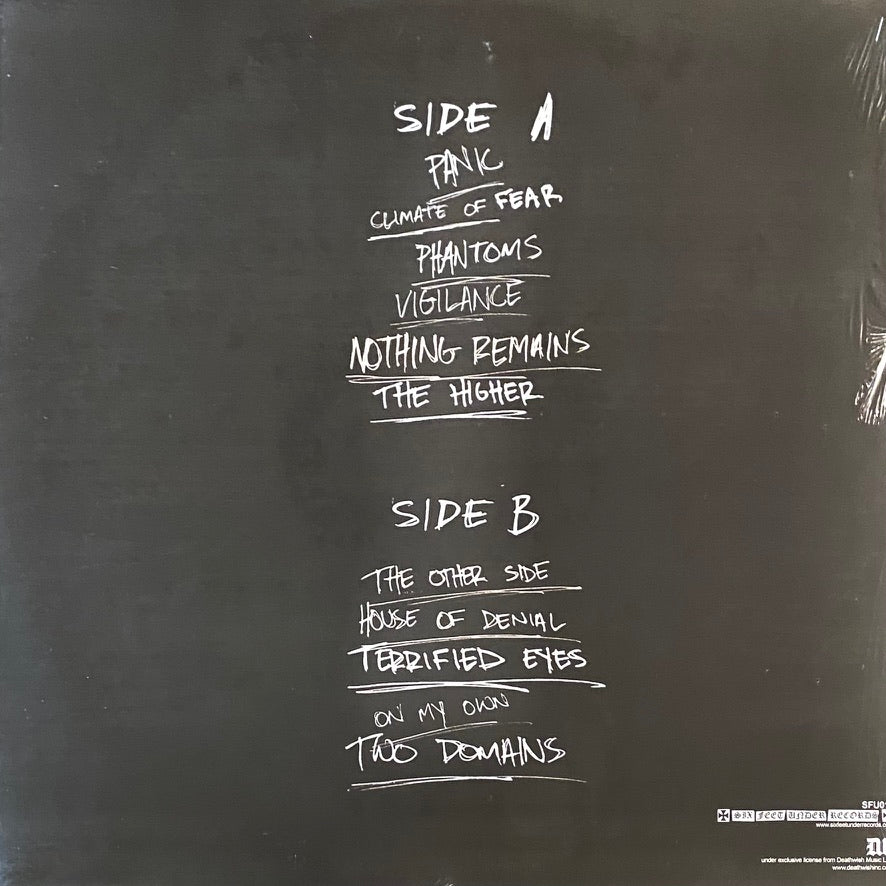 SIDE A
PANIC
CLIMATE OF FEAR
PHANTOMS
VIGILANCE
NOTHING REMAINS
THE HIGHER
SIDE B
THE OTHER SIDE
HOUSE OF DENIAL
TERRIFIED EYES
ON MY OWN
TWO DOMAINS
SFU0
SIX FEET UNDER RECORDS
www.sixfeetunderrecords.c
under exclusive license from Deathwish Music L
www.deathwishinc.c